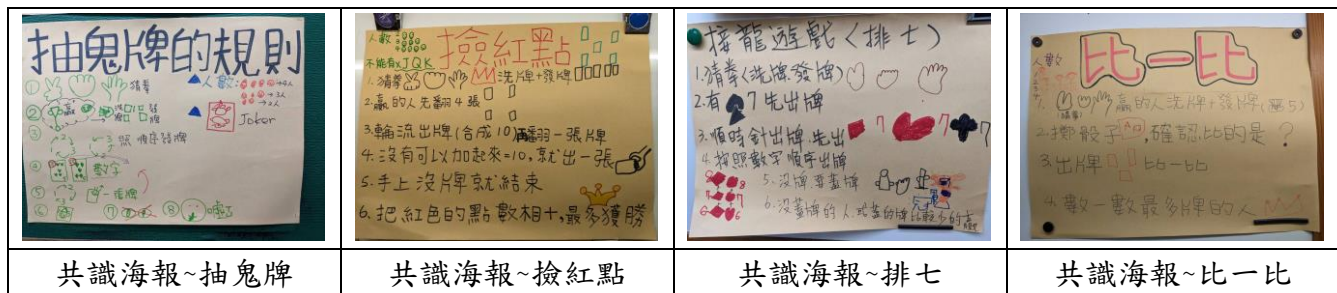 抽鬼牌的規則
① 猜拳
人數：
②
Joker
③ 照順序發牌
④ 數字
⑤
⑥ ⑦ ⑧
人數：
撿紅點
不能有xJQK
1.猜拳 洗牌+發牌
2.贏的人先翻4張
3.輪流出牌(合成10)再翻一張牌
4.沒有可以加起來=10,就出一張
5.手上沒牌就結束
6.把紅色的點數相+,最多獲勝
接龍遊戲〈排七〉
1.猜拳(洗牌.發牌)
2.有♠7先出牌
3.順時針出牌,先出♦7♥7♣7
4.按照數字順序出牌
5.沒牌要蓋牌
6.沒蓋牌的人.或蓋的牌比較少的贏
比一比
人數
1. 贏的人洗牌+發牌
(猜拳)
2.擲骰子,確認比的是?
3.出牌 比一比
4.數一數最多牌的人
共識海報~抽鬼牌
共識海報~撿紅點
共識海報~排七
共識海報~比一比